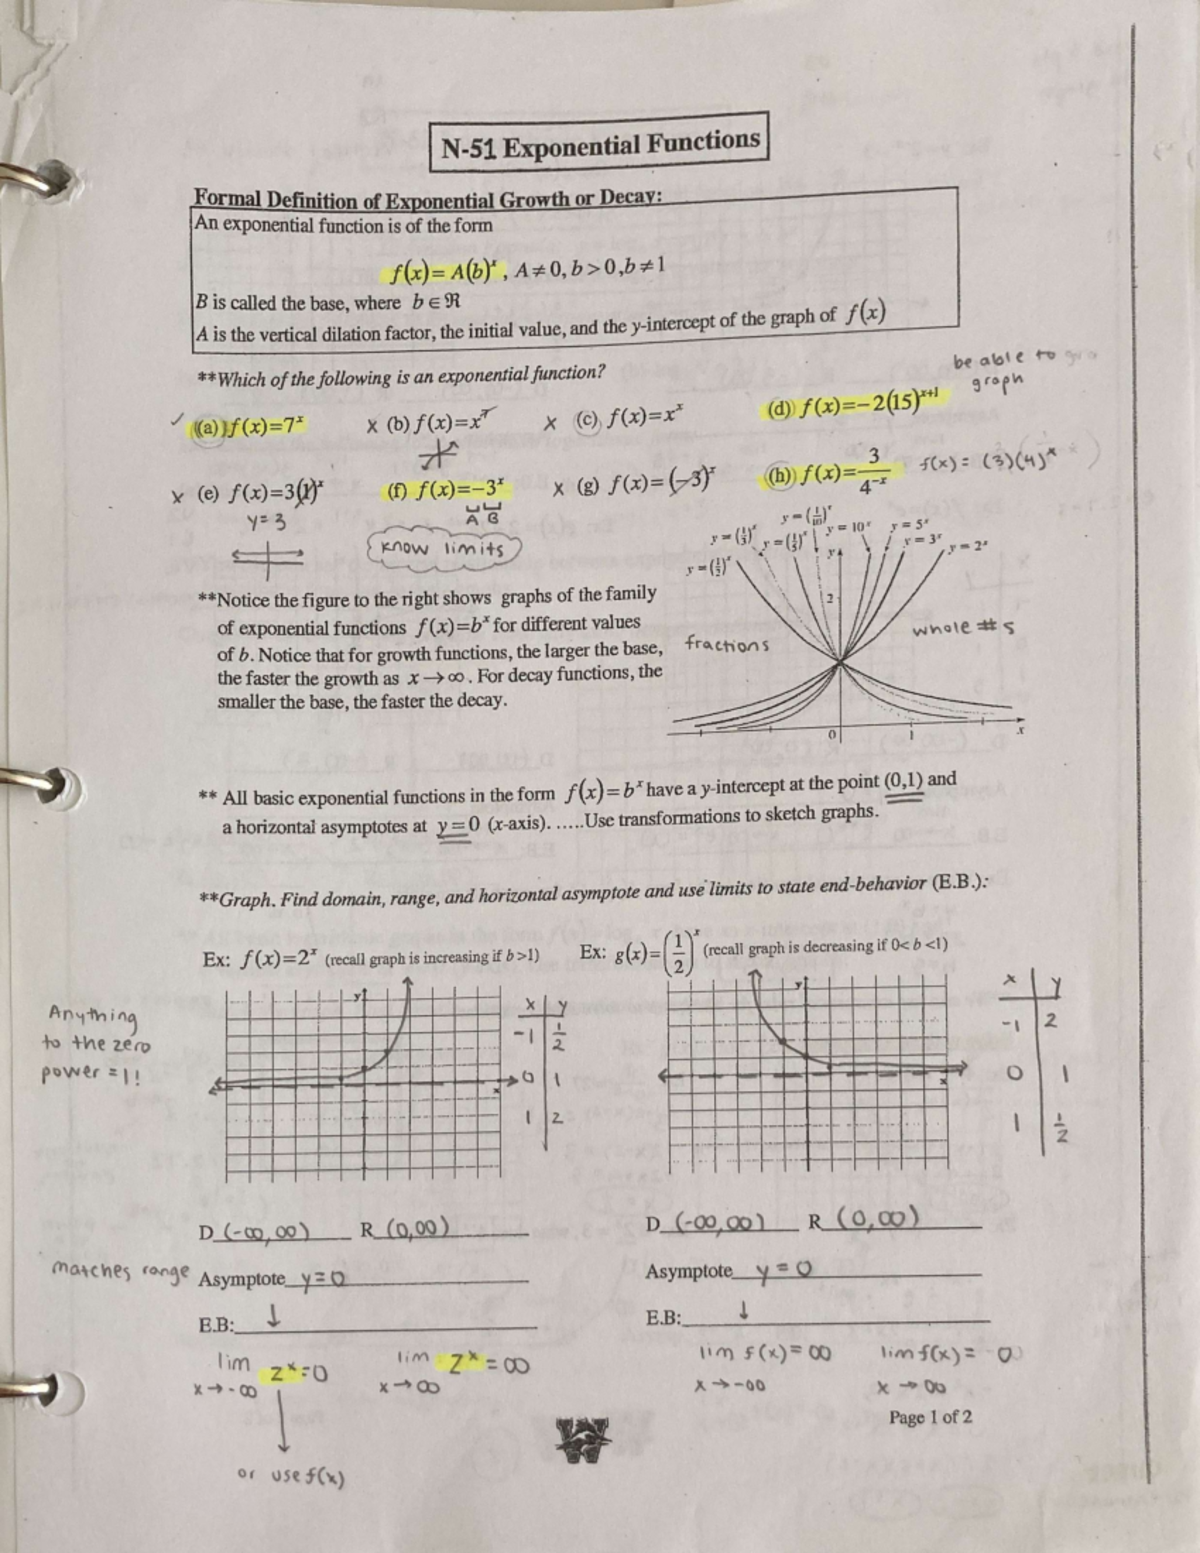 N-51 Exponential Functions
Formal Definition of Exponential Growth or Decay:
An exponential function is of the form
f(x)= A(b)ˣ , A≠0, b>0, b≠1
B is called the base, where b∈ℜ
A is the vertical dilation factor, the initial value, and the y-intercept of the graph of f(x)
**Which of the following is an exponential function?
be able to
graph
✓ (a) f(x)=7ˣ x (b) f(x)=x⁷ x (c) f(x)=xˣ (d) f(x)=−2(15)ˣ⁺¹
x (e) f(x)=3(1)ˣ (f) f(x)=−3ˣ x (g) f(x)=(−3)ˣ (h) f(x)=3/4⁻ˣ f(x) = (3)(4)ˣ
y=3 A B
know limits
y=(1/10)ˣ y=10ˣ y=5ˣ
y=(1/3)ˣ y=(1/5)ˣ y y=3ˣ y=2ˣ
y=(1/2)ˣ
2
**Notice the figure to the right shows graphs of the family
of exponential functions f(x)=bˣ for different values
of b. Notice that for growth functions, the larger the base,
the faster the growth as x→∞. For decay functions, the
smaller the base, the faster the decay.
fractions whole #s
0 1 x
** All basic exponential functions in the form f(x)=bˣ have a y-intercept at the point (0,1) and
a horizontal asymptotes at y=0 (x-axis). .....Use transformations to sketch graphs.
**Graph. Find domain, range, and horizontal asymptote and use limits to state end-behavior (E.B.):
Ex: f(x)=2ˣ (recall graph is increasing if b>1) Ex: g(x)=(1/2)ˣ (recall graph is decreasing if 0<b<1)
Anything
to the zero
power = 1!
y x
x y
-1 1/2
0 1
1 2
y x
x y
-1 2
0 1
1 1/2
D (-∞,∞) R (0,∞) D (-∞,∞) R (0,∞)
matches range Asymptote y=0 Asymptote y=0
E.B: ↓ E.B: ↓
lim 2ˣ=0 lim 2ˣ=∞ lim f(x)=∞ lim f(x)= 0
x→-∞ x→∞ x→-∞ x→∞
Page 1 of 2
or use f(x)
W